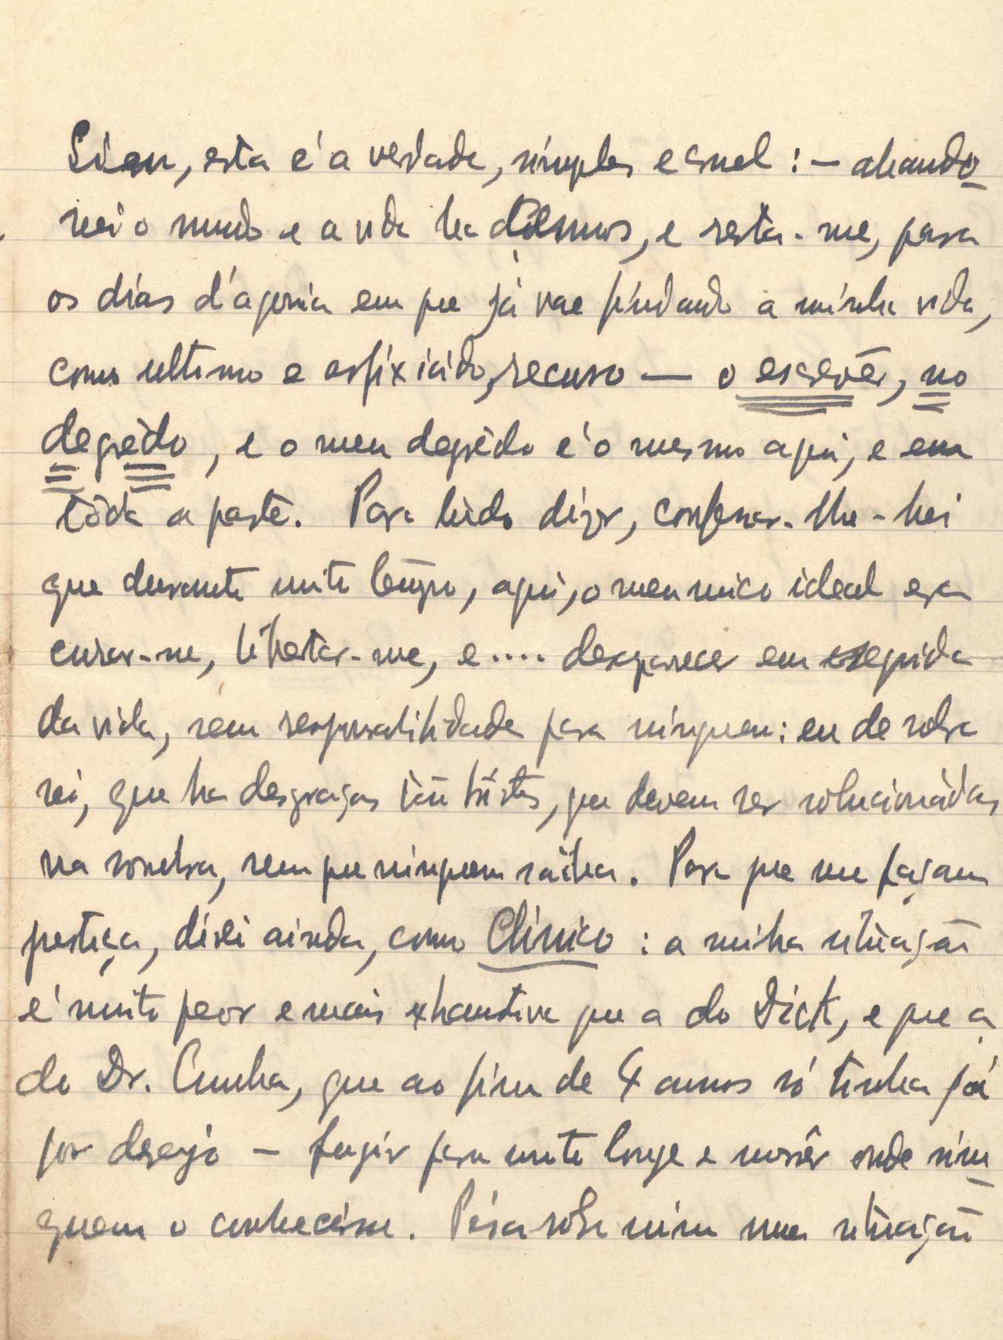 Sim, esta é a verdade, simples e cruel : — abando
nei o mundo e a vida ha 4 annos, e resta-me, para
os dias d'agonia em que já vae findando a minha vida,
como ultimo e asfixiádo, recurso — o escrevêr, no
degrêdo, e o meu degrêdo é o mesmo aqui, e em
tôda a parte. Para tudo dizer, confessar-lhe-hei
que durante muito tempo, aqui, o meu unico ideal era
curar-me, libertar-me, e .... desaparecer em seguida
da vida, sem responsabilidade para ninguem: eu de sobra
sei, que ha desgraças tão tristes, que devem ser solucionádas
na sombra, sem que ninguem saiba. Para que me façam
justiça, direi ainda, como Clinico : a minha situação
é muito peor e mais exhaustiva que a do Dick, e que a
do Dr. Cunha, que ao fim de 4 annos só tinha já
por desejo — fugir para muito longe e morrêr onde nin
guem o conhecesse. Pésa sobre mim uma situação